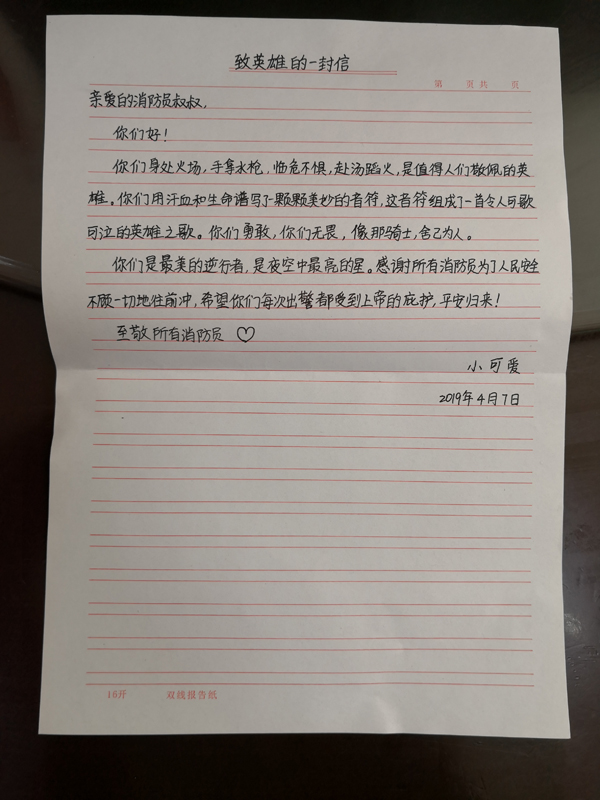 致英雄的一封信
第 页 共 页
亲爱的消防员叔叔,
你们好!
你们身处火场,手拿水枪,临危不惧,赴汤蹈火,是值得人们敬佩的英
雄。你们用汗血和生命谱写了一颗颗美妙的音符,这音符组成了一首令人可歌
可泣的英雄之歌。你们勇敢,你们无畏,像那骑士,舍己为人。
你们是最美的逆行者,是夜空中最亮的星。感谢所有消防员为了人民安全
不顾一切地往前冲,希望你们每次出警都受到上帝的庇护,平安归来!
至敬所有消防员 ♡
小可爱
2019年4月7日
16开 双线报告纸